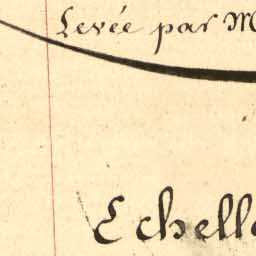 Levée par M
Echell